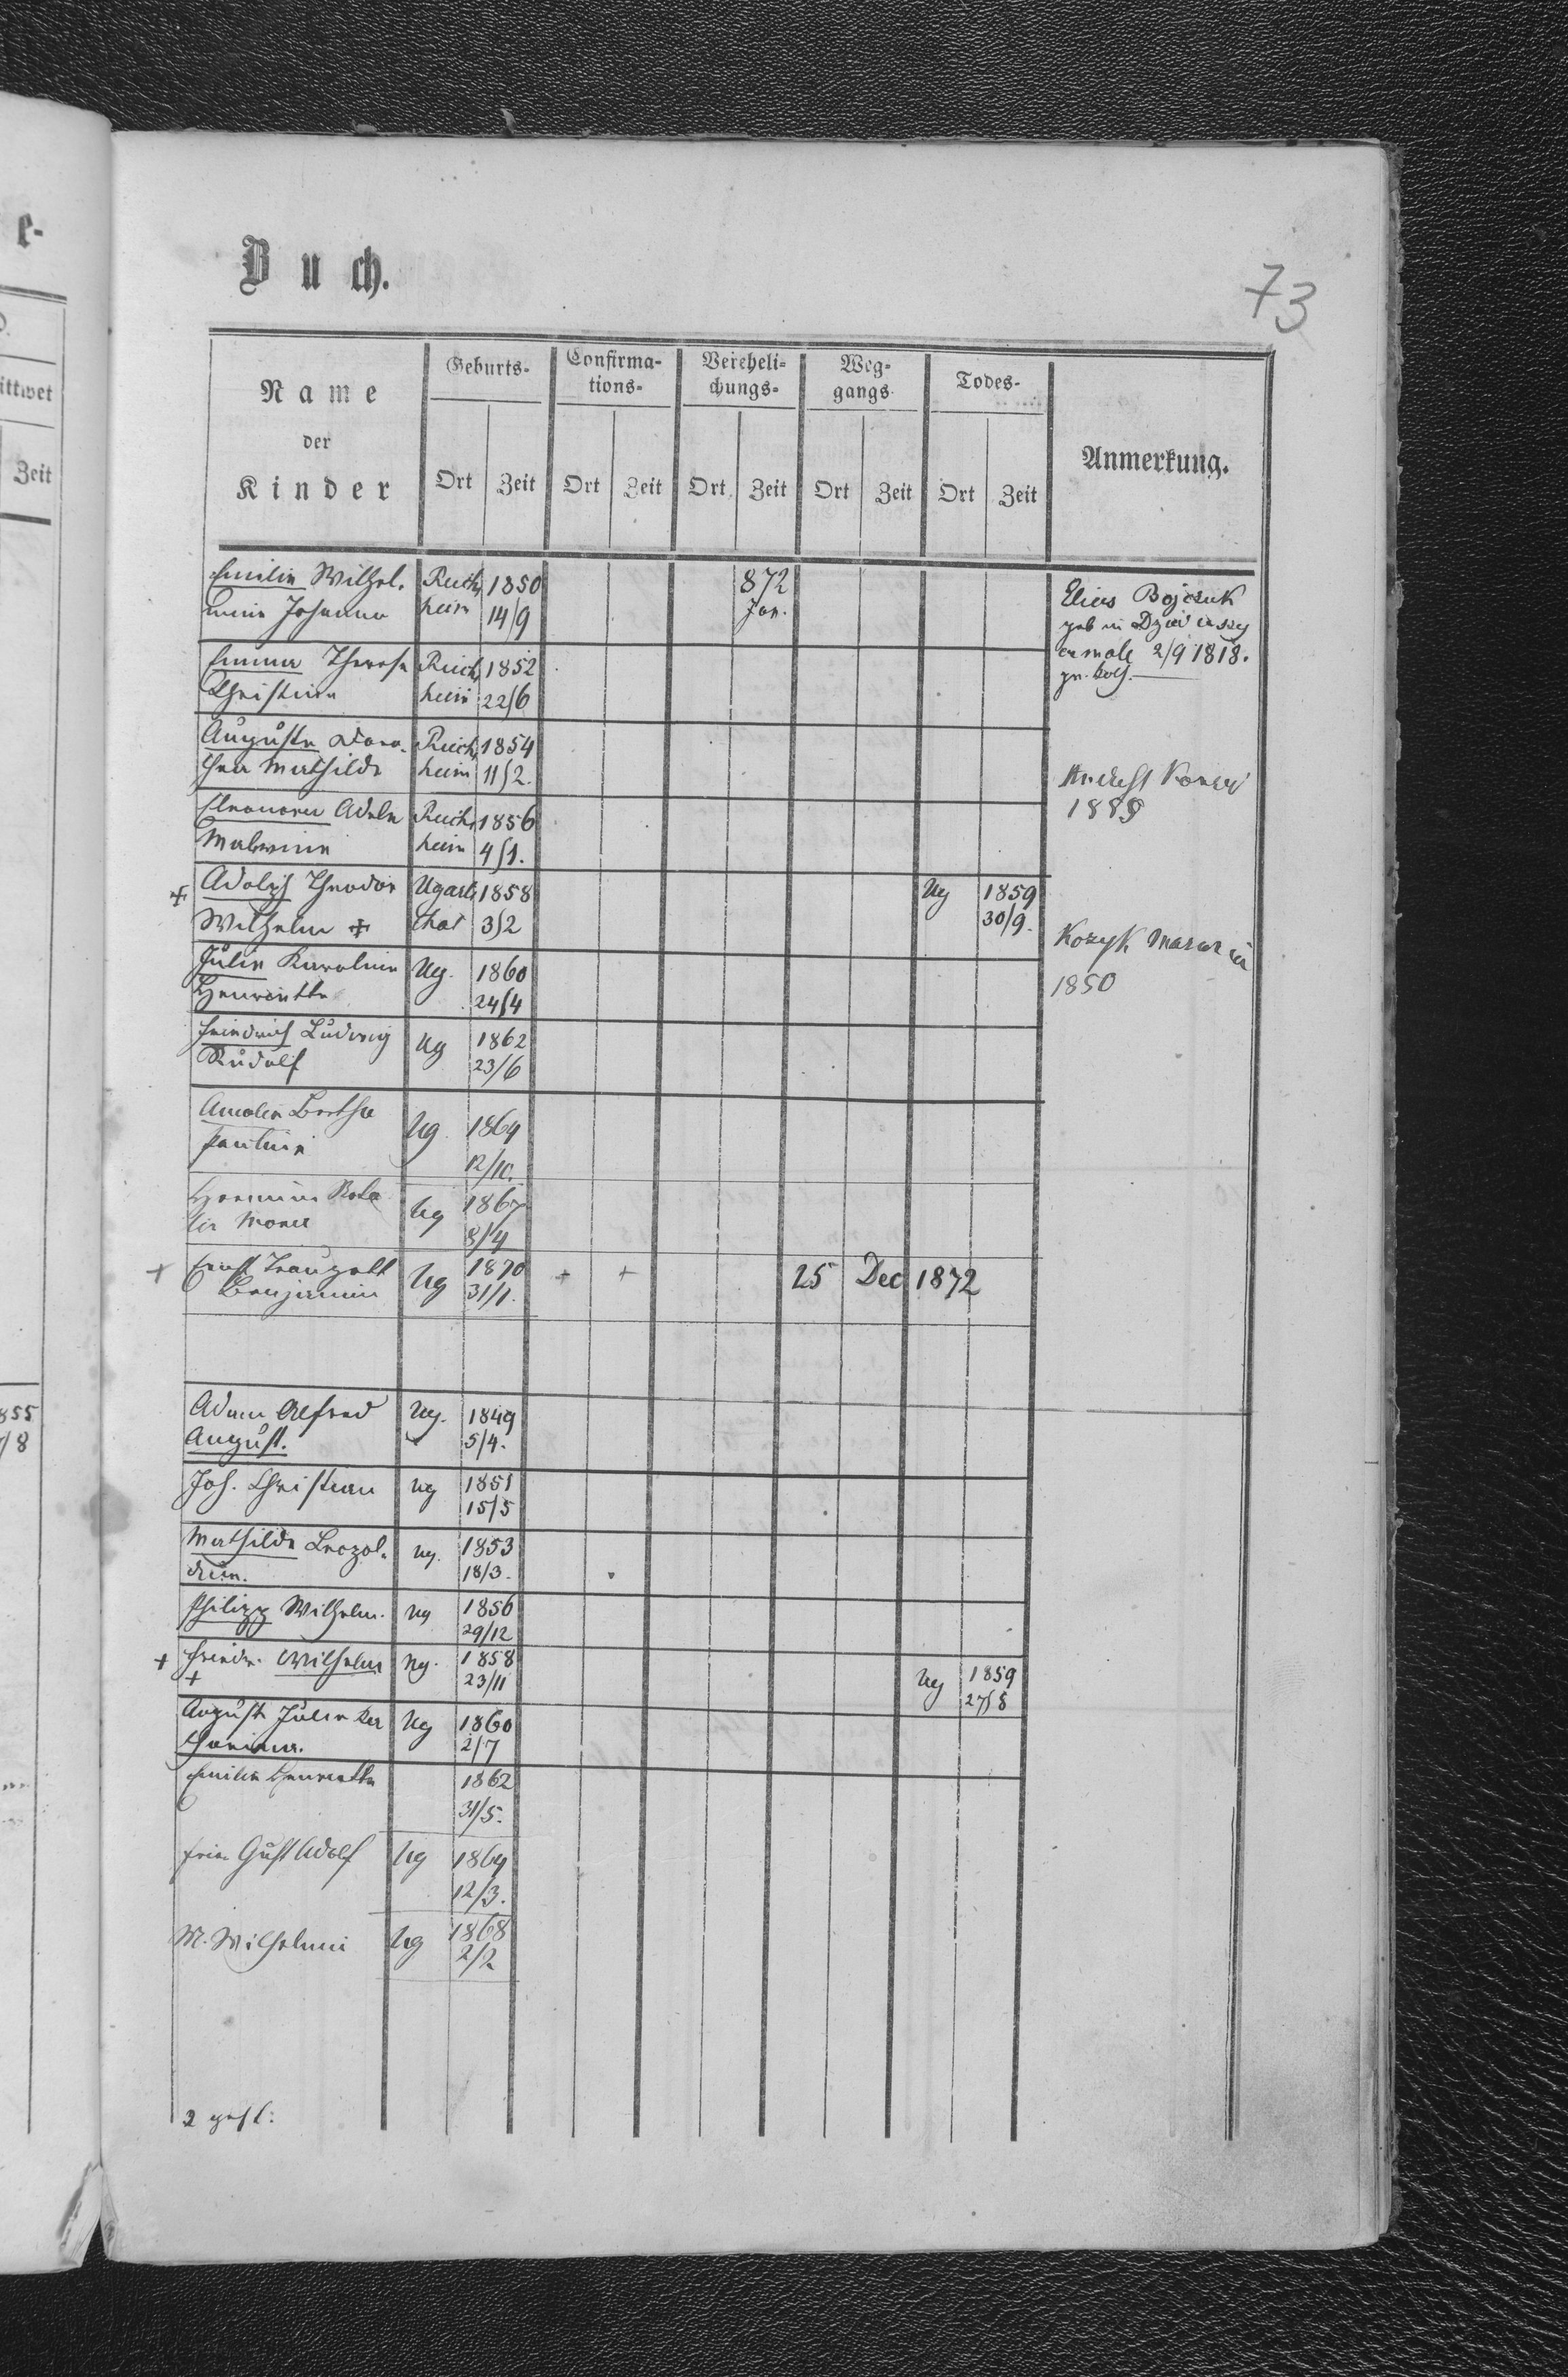 e-
ittwet
Zeit
855
/8
Buch.
73
Name
der
Kinder
Geburts-
Confirma-
tions-
Vereheli-
chungs-
Weg-
gangs-
Todes-
Anmerkung.
Ort Zeit Ort Zeit Ort Zeit Ort Zeit Ort Zeit
Emilie Wilhel- Reichs 1850 872
mine Johanna heim 14/9 Jan.
Elias Bojczuk
geb in
2/9 1818.
Emma Therese Reichs 1852
Christine heim 22/6
Auguste Doro- Reichs 1854
thea Mathilde heim 11/2.
1889
Eleonore Adele Reichs 1856
Malwine heim 4/1.
+ Adolph Theodor Ugarts 1858 Ug 1859
Wilhelm + thal 3/2 30/9.
Kozyk
1850
Julie Karoline Ug. 1860
Henriette 24/4
Friedrich Ludwig Ug 1862
Rudolf 23/6
Amalie Bertha Ug 1864
Pauline 12/10.
Hermine Rosa Ug 1867
lie 8/4
+ Ernst Traugott Ug 1870 + + 25 Dec 1872
Benjamin 31/1.
Adam Alfred Ug. 1849
August. 5/4.
Joh. Christian Ug 1851
15/5
Mathilde Leopol- Ug. 1853
dine. 18/3.
Philipp Wilhelm. Ug 1856
29/12
+ Friedr. Wilhelm Ug. 1858 Ug 1859
+ 23/11 27/8
August Julie Ka Ug 1860
tharina. 2/7
Emilie Henriette 1862
31/5.
Gust Adolf Ug 1864
12/3.
M. Wilhelmi Ug 1868
2/2
2 gest: